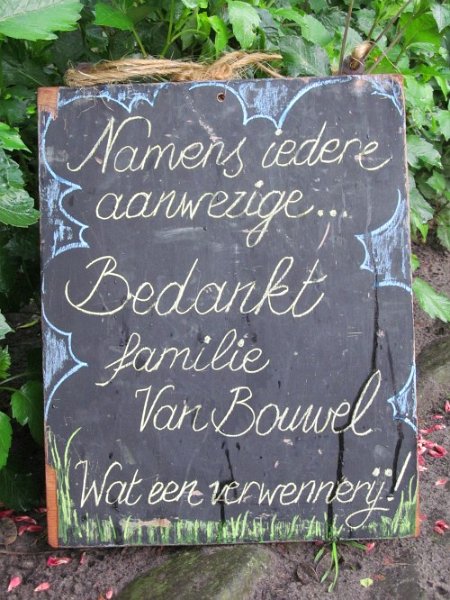 Namens iedere
aanwezige...
Bedankt
familie
Van Bouwel
Wat een verwennerÿ!